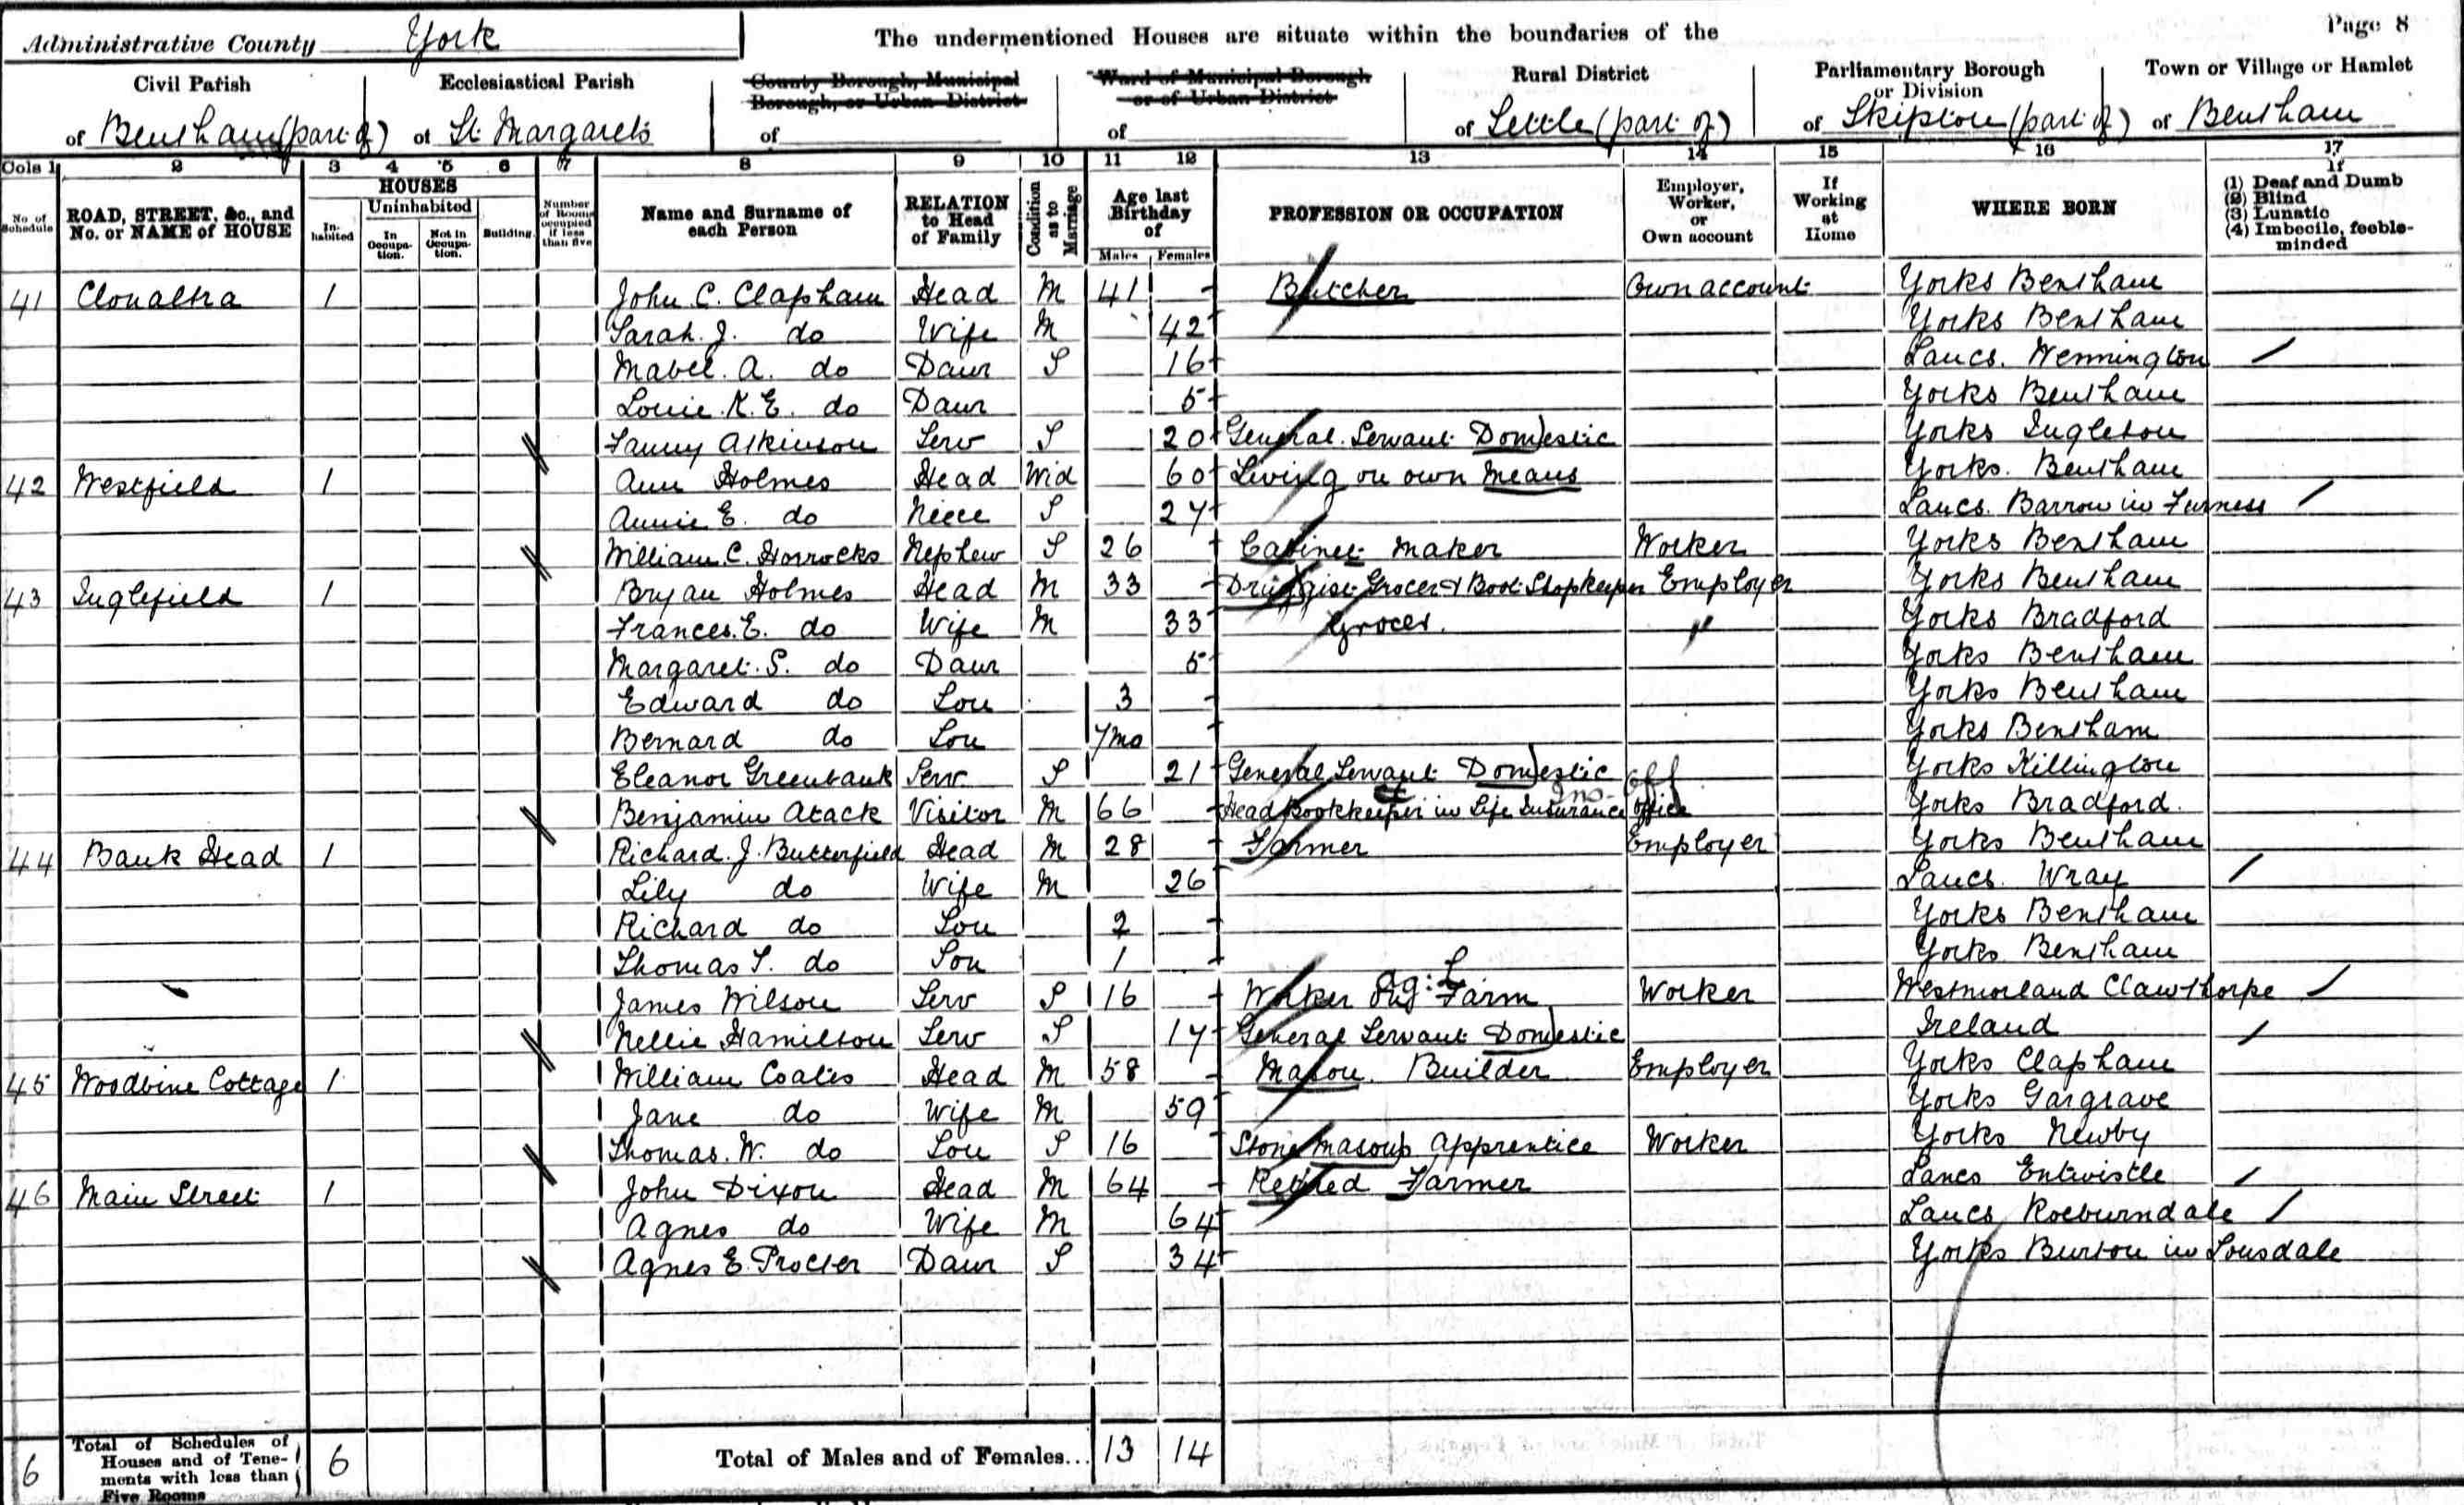 Page 8
Administrative County York The undermentioned Houses are situate within the boundaries of the
Civil Parish Ecclesiastical Parish County Borough, Municipal Borough, or Urban District Ward of Municipal Borough or of Urban District Rural District Parliamentary Borough or Division Town or Village or Hamlet
of Bentham (part of) of St. Margaret's of of of Settle (part of) of Skipton (part of) of Bentham
Cols 1 2 3 4 5 6 7 8 9 10 11 12 13 14 15 16 17
No. of Schedule ROAD, STREET, &c., and No. or NAME of HOUSE HOUSES In-habited Uninhabited In Occupa-tion. Not in Occupa-tion. Building Number of Rooms occupied if less than five Name and Surname of each Person RELATION to Head of Family Condition as to Marriage Age last Birthday of Males Females PROFESSION OR OCCUPATION Employer, Worker, or Own account If Working at Home WHERE BORN If (1) Deaf and Dumb (2) Blind (3) Lunatic (4) Imbecile, feeble-minded
41 1 John C. Clapham Head M 41 Butcher Own account Yorks Bentham
Sarah. J. do Wife M 42 Yorks Bentham
Mabel. A. do Daur S 16 Lancs. Wennington
Louie. K. E. do Daur 5 Yorks Bentham
Fanny Atkinson Serv S 20 General Servant Domestic Yorks Ingleton
42 Westfield 1 Ann Holmes Head Wid 60 Living on own means Yorks. Bentham
Annie E. do Niece S 27 Lancs. Barrow in Furness
William. C. Horrocks Nephew S 26 Cabinet Maker Worker Yorks Bentham
43 Inglefield 1 Bryan Holmes Head M 33 Druggist Grocer & Boot Shopkeeper Employer Yorks Bentham
Frances. E. do Wife M 33 Grocer. " Yorks Bradford
Margaret. S. do Daur 5 Yorks Bentham
Edward do Son 3 Yorks Bentham
Bernard do Son 7mo Yorks Bentham
Eleanor Greenbank Serv. S 21 General Servant Domestic Yorks Killington
Ins. Off
Benjamin Atack Visitor M 66 Head Bookkeeper in Life Insurance Office Yorks Bradford.
44 Bank Head 1 Richard. J. Butterfield Head M 28 Farmer Employer Yorks Bentham
Lily do Wife M 26 Lancs. Wray
Richard do Son 2 Yorks Bentham
Thomas T. do Son 1 Yorks. Bentham
Ag: L
James Wilson Serv S 16 Worker on Farm Worker Westmorland Clawthorpe
Nellie Hamilton Serv S 17 General Servant Domestic Ireland
45 Woodbine Cottage 1 William Coates Head M 58 Mason. Builder Employer Yorks Clapham
Jane do Wife M 59 Yorks Gargrave
Thomas. W. do Son S 16 Stone Masons Apprentice Worker Yorks Newby
46 Main Street 1 John Dixon Head M 64 Retired Farmer Lancs Entwistle
Agnes do Wife M 64 Lancs Roeburndale
Agnes E. Procter Daur S 34 Yorks Burton in Lonsdale
6 Total of Schedules of Houses and of Tene-ments with less than Five Rooms 6 Total of Males and of Females... 13 14